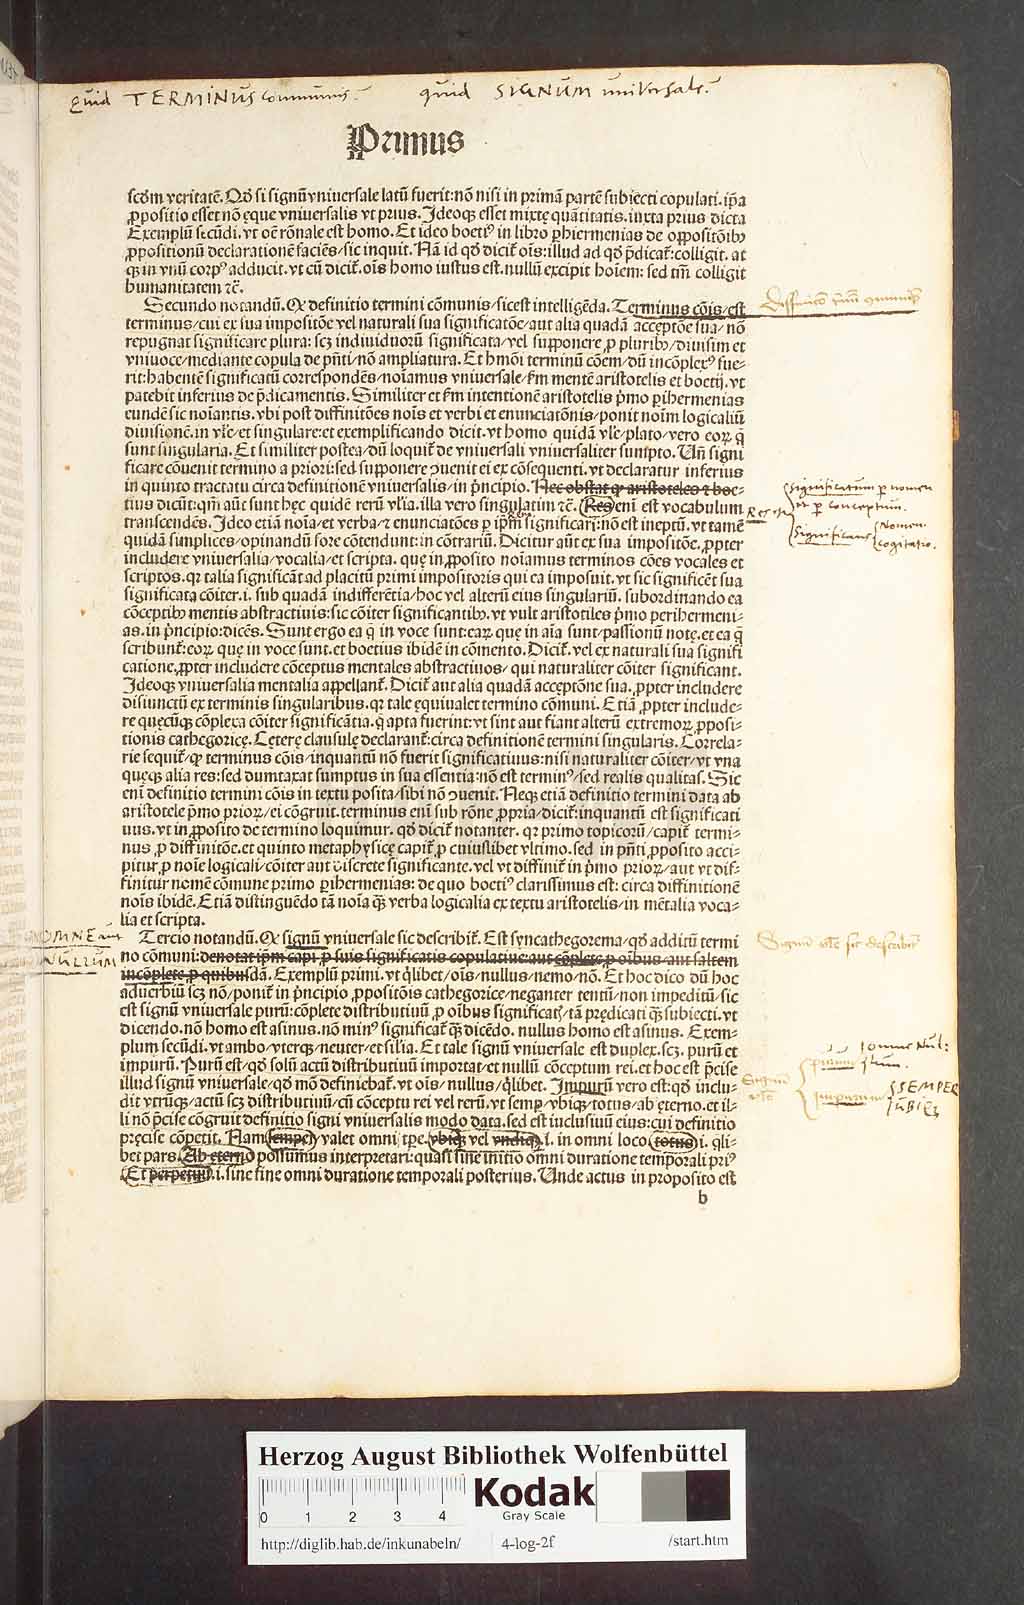 quid TERMINUS communis? quid SIGNUM universale?
Primus
scd̄m veritatē. Qd̄ si signū vniuersale latū fuerit: nō nisi in primā partē subiecti copulati. ip̄a
p̱positio esset nō ęque vniuersalis vt prius. Ideoqꝫ esset mixtę quātitatis. iuxta prius dicta
Exemplū secūdi. vt oē rōnale est homo. Et ideo boetiꝰ in libro ꝑhiermenias de oppositōibꝫ
ꝓpositionū declarationē faciēs/ sic inquit. Nā id qd̄ dicit̄ oīs: illud ad qd̄ p̄dicat̄: colligit. at
qꝫ in vnū corpꝰ adducit. vt cū dicit̄. oīs homo iustus est. nullū excipit hoīem: sed tm̄ colligit
humanitatem ⁊c̄.
Secundo notandū. Ꝙ definitio termini cōmunis/ sic est intelligēda. Terminus cōis/ est
terminus/ cui ex sua impositōe vel naturali sua significatōe/ aut alia quadā acceptōe sua/ nō
repugnat significare plura: scꝫ indiuiduorū significata/ vel supponere ꝓ pluribꝫ/ diuisim et
vniuoce/ mediante copula de pn̄ti/ nō ampliatura. Et hmōi terminū cōem/ dū incōplexꝰ fue-
rit: habentē significatū correspondēs/ noīamus vniuersale/ fm mentē aristotelis et boetij. vt
patebit inferius de p̄dicamentis. Similiter et fm intentionē aristotelis p̄mo ꝑihermenias
eundē sic noīantis. vbi post diffinitōes noīs et verbi et enunciatōnis/ ponit noīm logicaliū
diuisionē. in vl̄e/ et singulare: et exemplificando dicit. vt homo quidā vl̄e/ plato/ vero eoꝝ q̄
sunt singularia. Et similiter postea/ dū loquit̄ de vniuersali vniuersaliter sumpto. Un̄ signi
ficare cōuenit termino a priori: sed supponere ꝯuenit ei ex cōsequenti. vt declaratur inferius
in quinto tractatu circa definitionē vniuersalis/ in p̄ncipio. Nec obstat ꝙ aristoteles ⁊ boe-
tius dicūt: qm̄ aūt sunt hęc quidē rerū vl̄ia. illa vero singulatim ⁊c̄. Res enī est vocabulum
transcendēs. Ideo etiā noīa/ et verba/ ⁊ enunciatōes ꝑ ip̄m significari: nō est ineptū. vt tamē
quidā simplices/ opinandū fore cōtendunt: in cōtrariū. Dicitur aūt ex sua impositōe. ꝓpter
includere vniuersalia/ vocalia/ et scripta. quę in ꝓposito noīamus terminos cōes vocales et
scriptos. qꝛ talia significāt ad placitū primi impositoris qui ea imposuit. vt sic significēt sua
significata cōiter. i. sub quadā indifferētia/ hoc vel alterū eius singulariū. subordinando ea
cōceptibꝫ mentis abstractiuis: sic cōiter significantibꝫ. vt vult aristotiles p̄mo perihermeni-
as. in p̄ncipio: dicēs. Sunt ergo ea q̄ in voce sunt: eaꝝ quę in aīa sunt/ passionū notę. et ea q̄
scribunt̄: eoꝝ quę in voce sunt. et boetius ibidē in cōmento. Dicit̄. vel ex naturali sua signifi
catione. ꝓpter includere cōceptus mentales abstractiuos/ qui naturaliter cōiter significant.
Ideoqꝫ vniuersalia mentalia appellant̄. Dicit̄ aut alia quadā acceptōne sua. ꝓpter includere
disiunctū ex terminis singularibus. qꝛ tale ęquiualet termino cōmuni. Etiā ꝓpter include-
re quęcūqꝫ cōplexa cōiter significātia. q̄ apta fuerint: vt sint aut fiant alterū extremoꝝ ꝓposi-
tionis cathegoricę. Ceterę clausulę declarant̄: circa definitionē termini singularis. Correla-
rie sequit̄/ ꝙ terminus cōis/ inquantū nō fuerit significatiuus: nisi naturaliter cōiter/ vt vna
quęqꝫ alia res: sed dumtaxat sumptus in sua essentia: nō est terminꝰ/ sed realis qualitas. Sic
enī definitio termini cōis in textu posita/ sibi nō ꝯuenit. Neqꝫ etiā definitio termini data ab
aristotele p̄mo prioꝝ/ ei cōgruit. terminus enī sub rōne ꝓpria/ dicit̄: inquantū est significati
uus. vt in ꝓposito de termino loquimur. qd̄ dicit̄ notanter. qꝛ primo topicorū/ capit̄ termi-
nus ꝓ diffinitōe. et quinto metaphysicę capit̄ ꝓ cuiuslibet vltimo. sed in pn̄ti ꝓposito acci-
pitur ꝓ noīe logicali/ cōiter aut discrete significante. vel vt diffinit̄ in p̄mo prioꝝ/ aut vt dif-
finitur nomē cōmune primo ꝑihermenias: de quo boetiꝰ clarissimus est: circa diffinitionē
noīs ibidē. Etiā distinguēdo tā noīa qꝫ verba logicalia ex textu aristotelis/ in mētalia voca-
lia et scripta.
Tercio notandū. Ꝙ signū vniuersale sic describit̄. Est syncathegorema/ qd̄ additū termi
no cōmuni: denotat ip̄m capi ꝓ suis significatis copulatiue: aut cōplete ꝓ oibus aut saltem
incōplete ꝓ quibusdā. Exemplū primi. vt q̄libet/ oīs/ nullus/ nemo/ nō. Et hoc dico dū hoc
aduerbiū scꝫ nō/ ponit̄ in p̄ncipio ꝓpositōis cathegorice/ neganter tentū/ non impeditū/ sic
est signū vniuersale purū: cōplete distributiuū ꝓ oībus significat̄/ tā prędicati qꝫ subiecti. vt
dicendo. nō homo est asinus. nō minꝰ significat̄ qꝫ dicēdo. nullus homo est asinus. Exem-
plum secūdi. vt ambo/ vterqꝫ/ neuter/ et silia. Et tale signū vniuersale est duplex. scꝫ. purū et
impurū. Purū est/ qd̄ solū actū distributiuū importat/ et nullū cōceptum rei. et hoc est p̄cise
illud signū vniuersale/ qd̄ mō definiebat̄. vt oīs/ nullus/ q̄libet. Impurū vero est: qd̄ inclu-
dit vtrūqꝫ/ actū scꝫ distributiuū/ cū cōceptu rei vel rerū. vt semꝑ/ vbiqꝫ/ totus/ ab ęterno. et il-
li nō p̄cise cōgruit definitio signi vniuersalis modo data. sed est inclusiuū eius: cui definitio
pręcise cōpetit. Nam semper/ valet omni tꝑe. vbiqꝫ vel vndiqꝫ. i. in omni loco. totus. i. qli-
bet pars. Ab ęterno possumus interpretari: quasi sine initio omni duratione temporali priꝰ
Et perpetuū. i. sine fine omni duratione temporali posterius. Unde actus in proposito est
b
Significatum ꝑ nomen
et ꝑ conceptum.
Significans
Nomen.
cogitatio.
OMNE aut
NULLUM
Signū vl̄e sic describit̄
Signū
vl̄e
purum
impurum
SEMPER
UBIQꝫ
Herzog August Bibliothek Wolfenbüttel
0 1 2 3 4
Kodak
Gray Scale
http://diglib.hab.de/inkunabeln/ 4-log-2f /start.htm